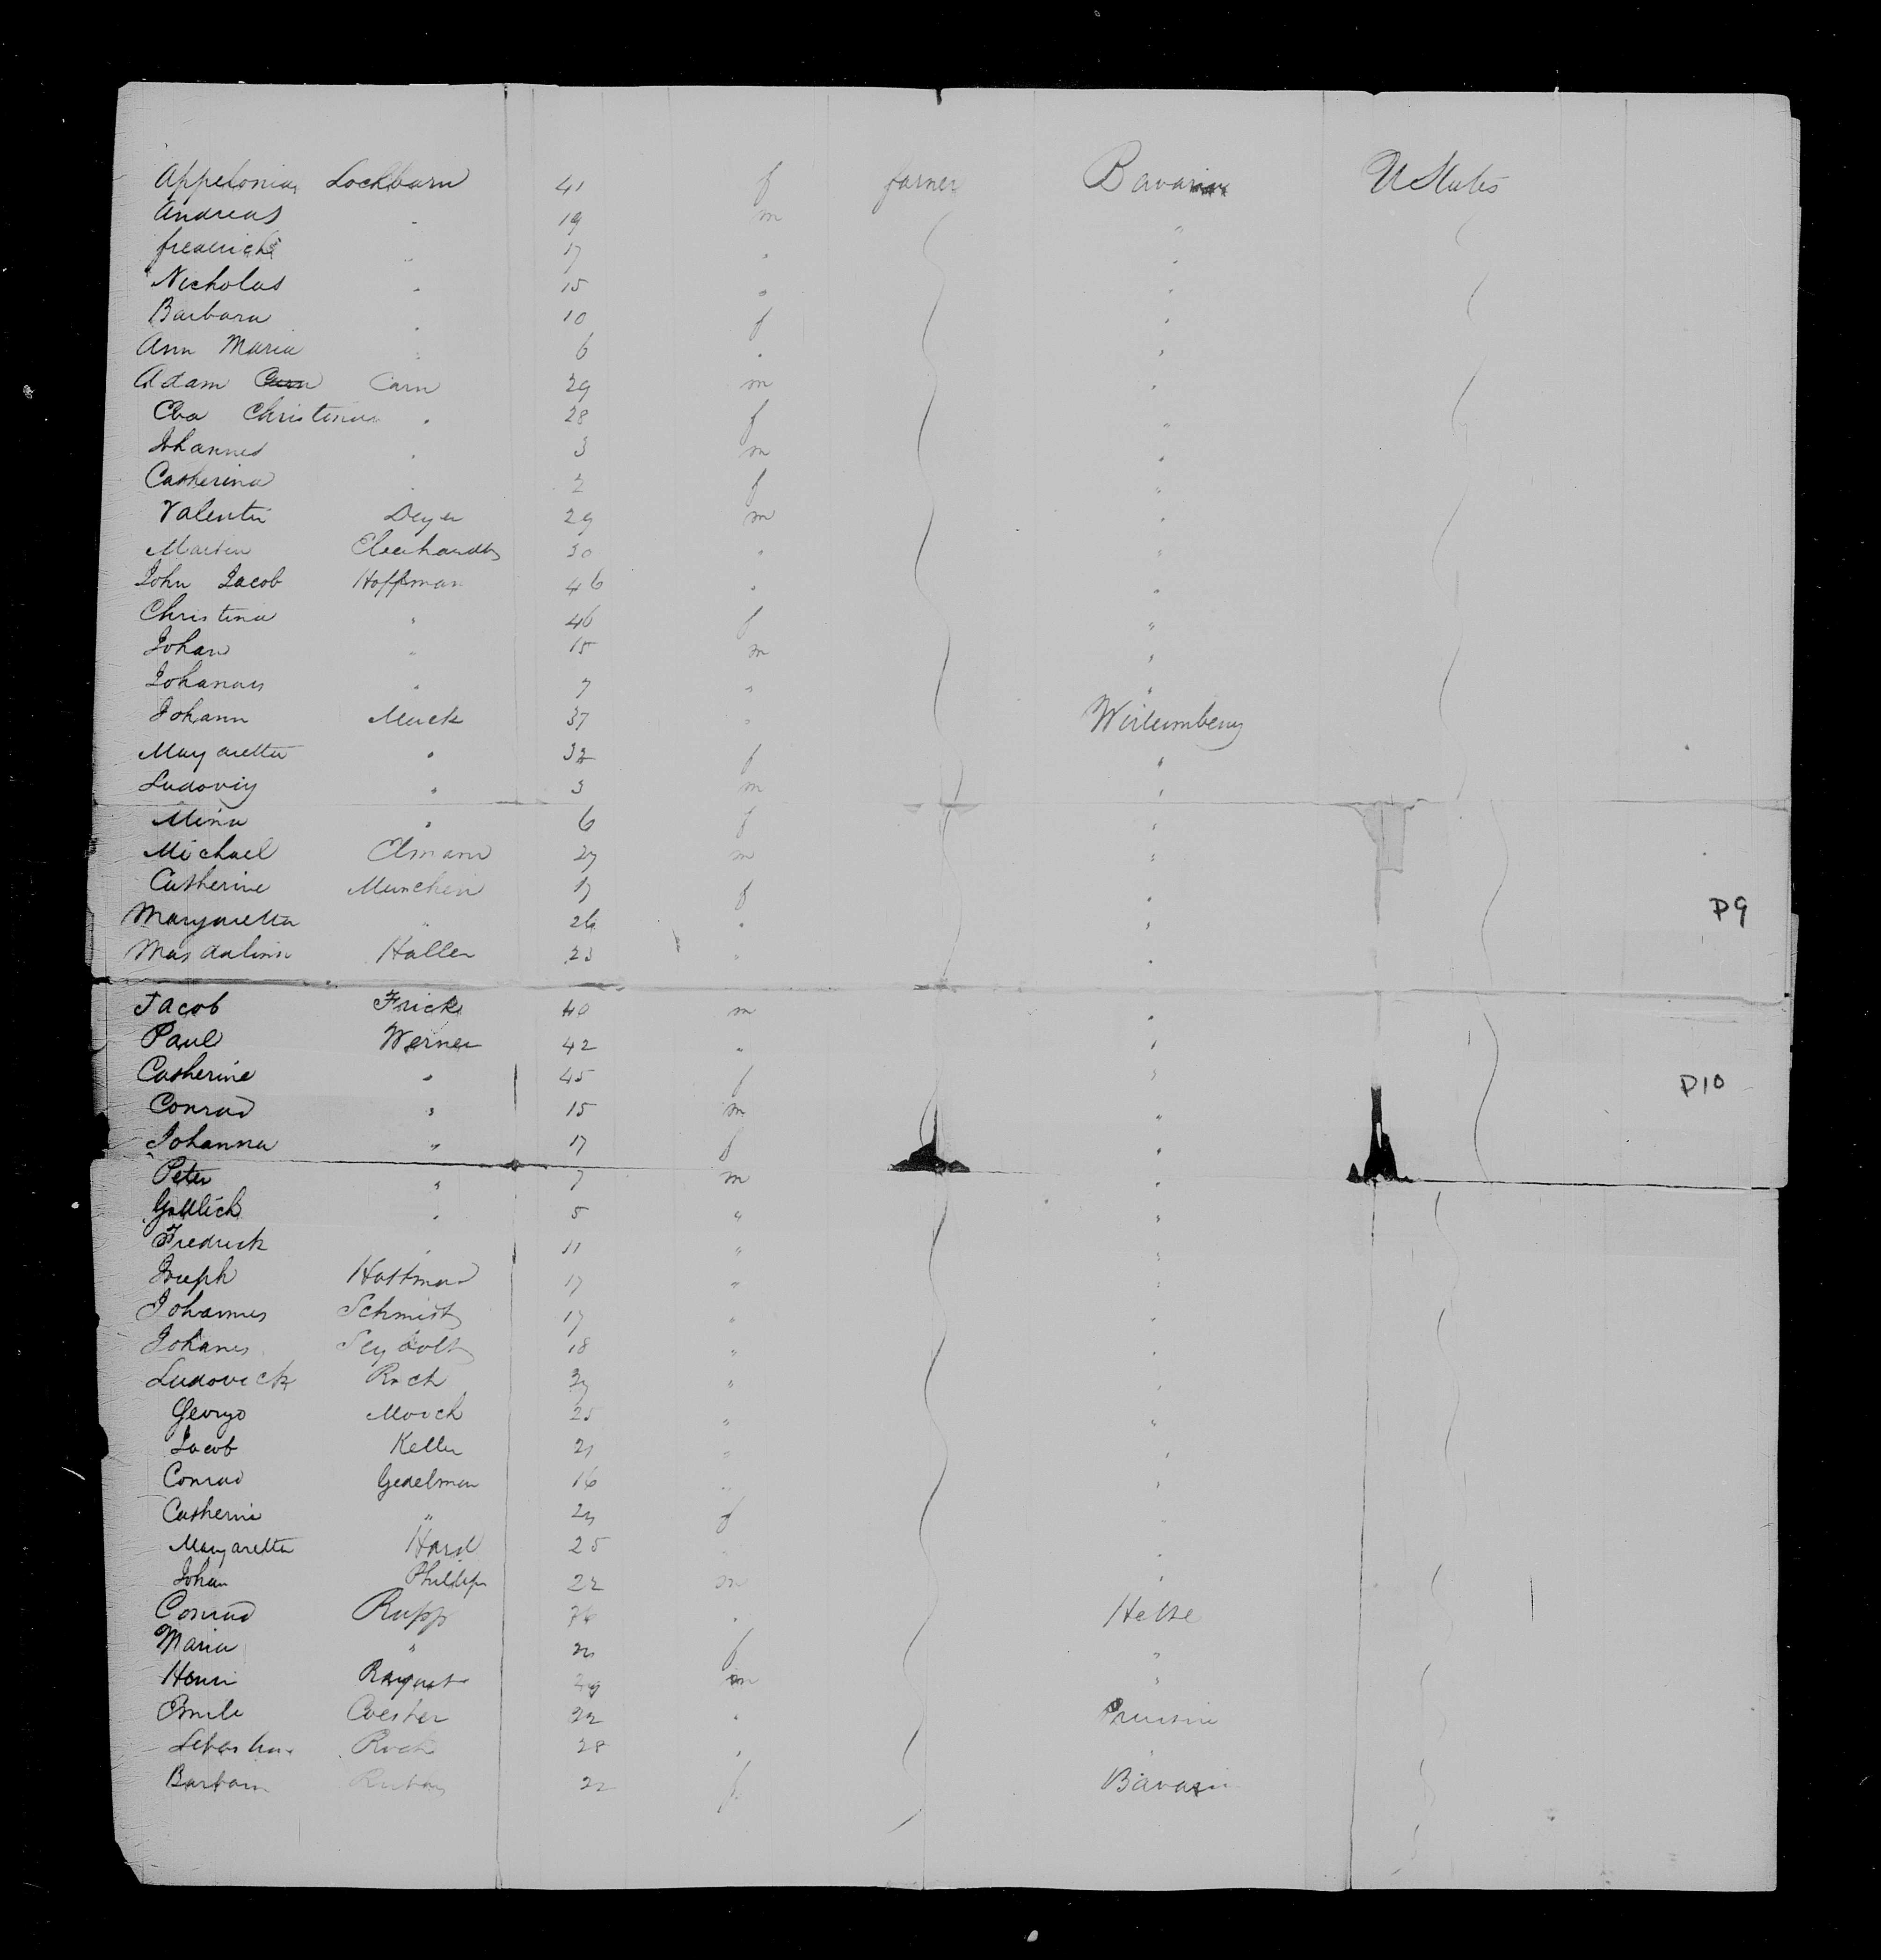 Appelonia Lockbaum 41 f farmer Bavaria U States
Andreas " 19 m "
frederick " 17 " "
Nicholas " 15 " "
Barbara " 10 f "
Ann Maria " 6 " "
Adam Carn 29 m "
Eva Christina " 28 f "
Johannes " 3 m "
Catherina " 2 f "
Valentin Deyer 29 m "
Martin Eberhardt 30 " "
John Jacob Hoffman 46 " "
Christina " 46 f "
Johan " 15 m "
Johannes " 7 " "
Johann Muck 37 " Wirtemberg
Margaretta " 32 f "
Ludovig " 3 m "
Mina " 6 f "
Michael Elmann 27 m "
Catherine Munchein 17 f "
Margaretta " 26 " "
P9
Haller 23 " "
Jacob Frick 40 m "
Paul Werner 42 " "
Catherine " 45 f "
P10
Conrad " 15 m "
Johanna " 17 f "
Peter " 7 m "
Gottlieb " 5 " "
Fredrick " 11 " "
Joseph 17 " "
Johannes Schmidt 17 " "
Johanes Seybolt 18 " "
Ludovick " "
George Mooch 25 " "
Jacob Keller 21 " "
Conrad Gedelman 16 " "
Catherine " f "
Margaretta Hard 25 "
Johan Phillips 22 m "
Conrad Rupp " Hesse
Maria " f "
Henri 29 m "
Emile Coester 32 " Prussia
Sebastian Roch 28 " "
Barbara 22 f Bavaria